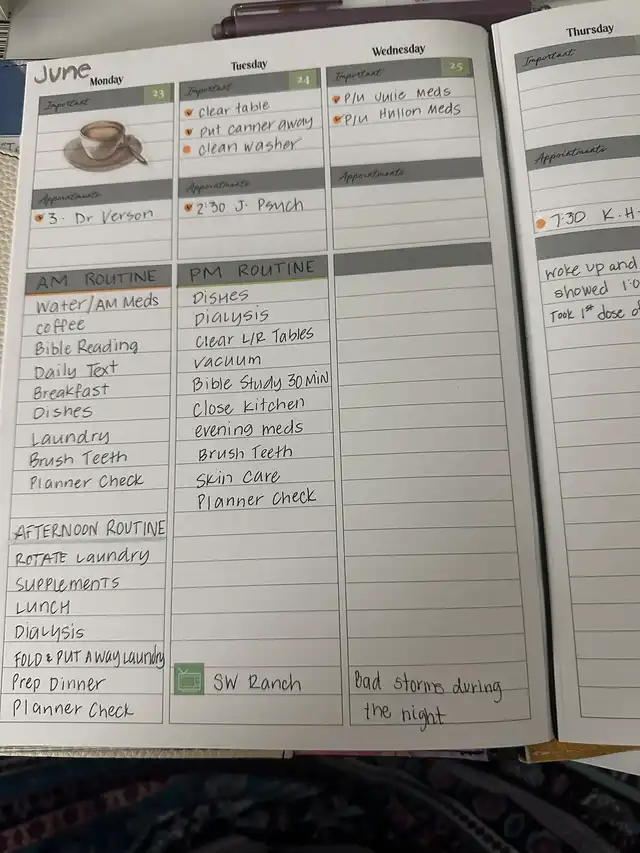 June
Monday
Important
23
Appointments
3. Dr Verson
AM ROUTINE
Water/AM Meds
coffee
Bible Reading
Daily Text
Breakfast
Dishes
Laundry
Brush Teeth
Planner Check
AFTERNOON ROUTINE
ROTATE Laundry
Supplements
Lunch
Dialysis
FOLD & PUT AWAY Laundry
Prep Dinner
Planner Check
Tuesday
Important
24
clear table
put canner away
clean washer
Appointments
2:30 J. Psych
PM ROUTINE
Dishes
Dialysis
Clear L/R Tables
Vacuum
Bible Study 30 Min
Close Kitchen
evening meds
Brush Teeth
Skin Care
Planner Check
SW Ranch
Wednesday
Important
25
P/U Julie Meds
P/U Meds
Appointments
Bad storms during
the night
Thursday
Important
Appointments
7:30 K.H
woke up and
showed
Took 1st dose of